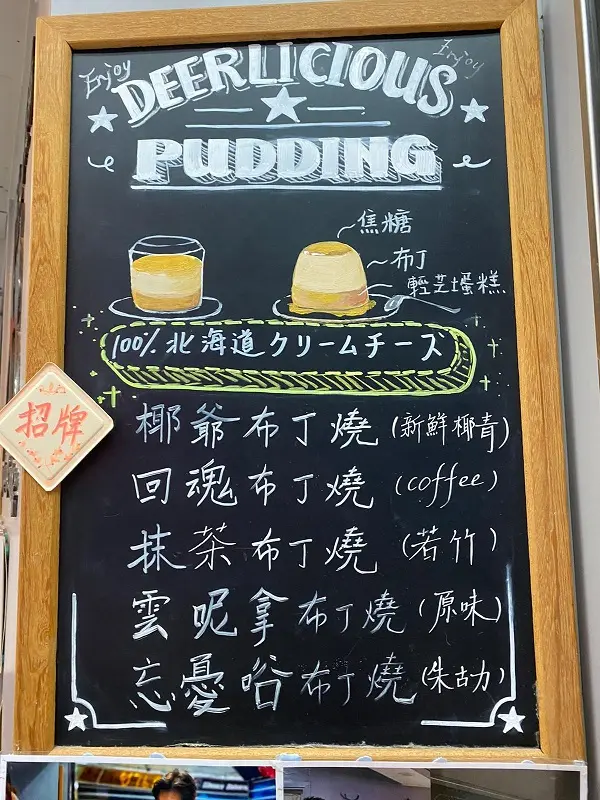 Enjoy
Enjoy
DEERLICIOUS
PUDDING
焦糖
布丁
輕芝士蛋糕
100% 北海道クリームチーズ
招牌
椰爺布丁燒(新鮮椰青)
回魂布丁燒(coffee)
抹茶布丁燒(若竹)
雲呢拿布丁燒(原味)
忘憂谷布丁燒(朱古力)